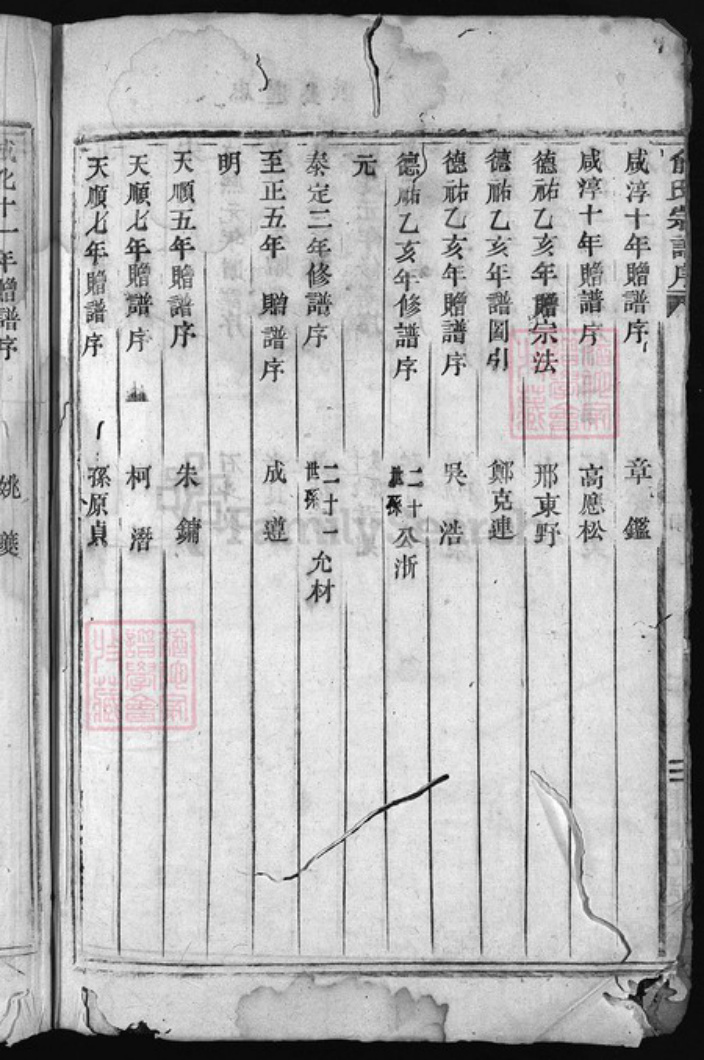 俞氏宗譜序
三
咸淳十年贈譜序 章鑑
咸淳十年贈譜序 高應松
德祐乙亥年贈宗法 邢東野
德祐乙亥年譜圖引 鄭克連
德祐乙亥年贈譜序 吳浩
德祐乙亥年修譜序 二十世孫公浙
元
泰定二年修譜序 二十一世孫允材
至正五年贈譜序 成遵
明
天順五年贈譜序 朱鏞
天順七年贈譜序 柯潛
天順七年贈譜序 孫原貞
成化十一年贈譜序 姚夔